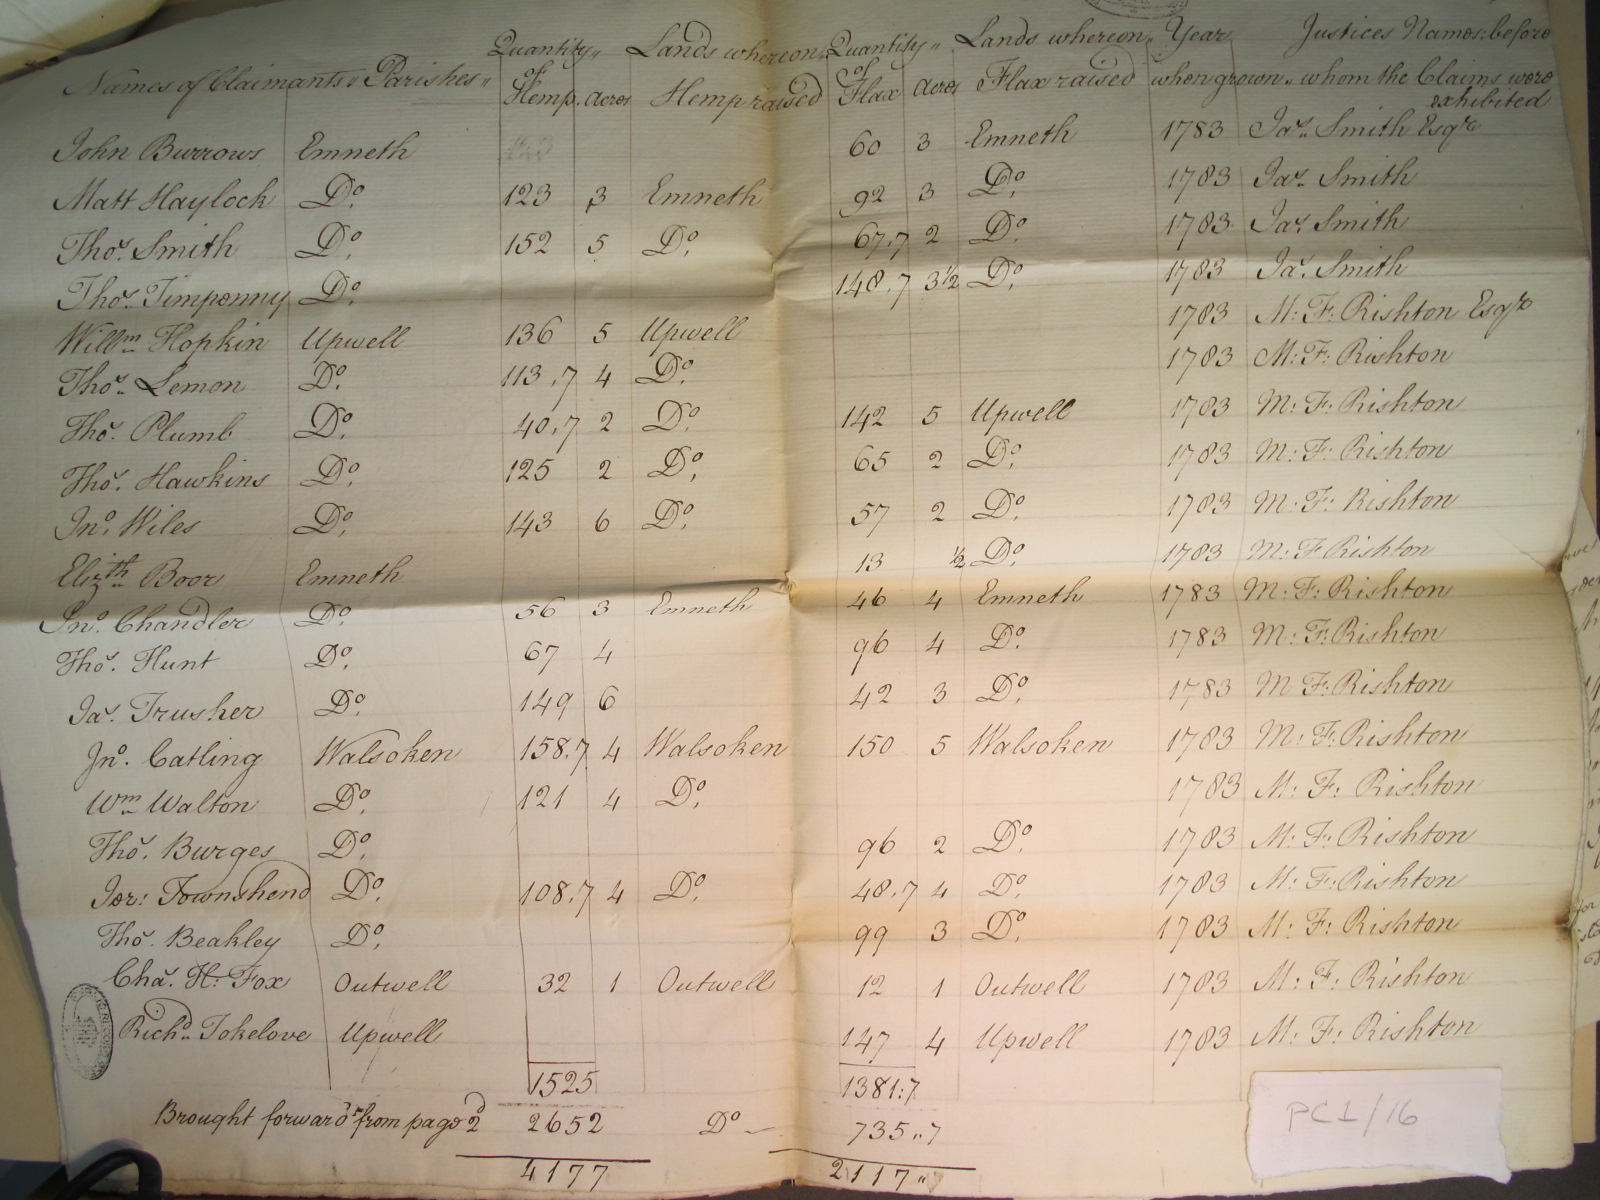 Names of Claimants „ Parishes „ Quantity „ of Hemp. Acres Lands whereon Hemp raised Quantity „ of Flax Acres Lands whereon „ Flax raised Year when grown „ Justices Names before whom the Claims were exhibited
John Burrows Emneth 60 3 Emneth 1783 Jas. Smith Esqre
Matt Haylock Do. 123 3 Emneth 92 3 Do. 1783 Jas. Smith
Thos. Smith Do. 152 5 Do. 67.7 2 Do. 1783 Jas. Smith
Thos. Timpenny Do. 148.7 3½ Do. 1783 Jas. Smith
Willm Hopkin Upwell 136 5 Upwell 1783 M: F: Rishton Esqre
Thos. Lemon Do. 113.7 4 Do. 1783 M: F: Rishton
Thos. Plumb Do. 40.7 2 Do. 142 5 Upwell 1783 M: F: Rishton
Thos. Hawkins Do. 125 2 Do. 65 2 Do. 1783 M: F: Rishton
Jno. Wiles Do. 143 6 Do. 57 2 Do. 1783 M: F: Rishton
Elizth Boor Emneth 13 ½ Do. 1783 M: F: Rishton
Jno. Chandler Do. 56 3 Emneth 46 4 Emneth 1783 M: F: Rishton
Thos. Hunt Do. 67 4 96 4 Do. 1783 M: F: Rishton
Jas. Trusher Do. 149 6 42 3 Do. 1783 M F: Rishton
Jno. Catling Walsoken 158.7 4 Walsoken 150 5 Walsoken 1783 M: F: Rishton
Wm Walton Do. 121 4 Do. 1783 M: F: Rishton
Thos. Burges Do. 96 2 Do. 1783 M: F: Rishton
Jer: Townshend Do. 108.7 4 Do. 48.7 4 Do. 1783 M: F: Rishton
Thos. Beakley Do. 99 3 Do. 1783 M: F: Rishton
Chas. H: Fox Outwell 32 1 Outwell 12 1 Outwell 1783 M: F: Rishton
Richd. Tokelove Upwell 147 4 Upwell 1783 M: F: Rishton
1525 1381:7
Brought forward from page 2 2652 Do 735„7
4177 2117„
PC1/16